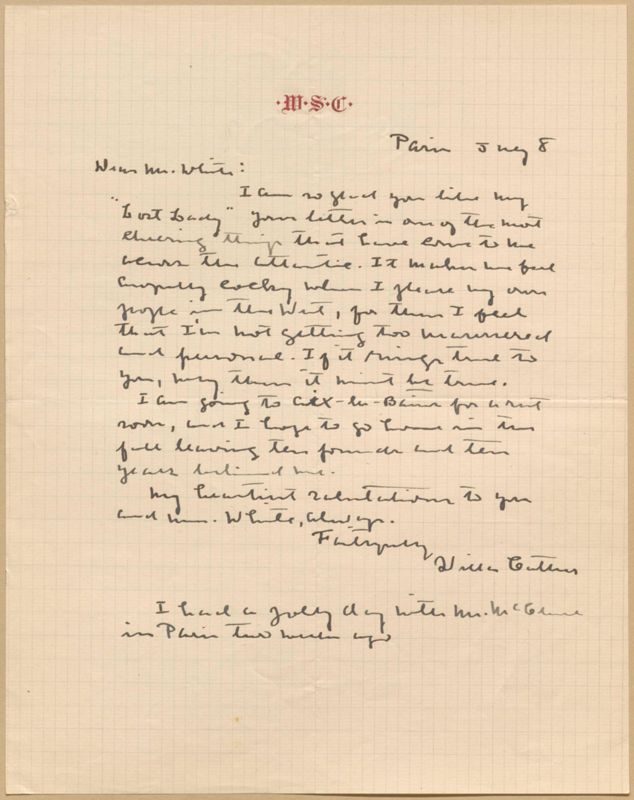 ·W·S·C·
Paris July 8
Dear Mr. White:
I am so glad you like my
"Lost Lady" your letter is one of the most
cheering things that have come to me
across the Atlantic. It makes me feel
awfully cocky when I please my own
people in the West, for then I feel
that I'm not getting too mannered
and personal. If it rings true to
you, why then it must be true.
I am going to Aix-les-Bains for a rest
soon, and I hope to go home in the
fall leaving ten pounds and ten
years behind me.
My heartiest salutations to you
and Mrs. White, always.
Faithfully
Willa Cather
I had a jolly day with Mr. McClure
in Paris two weeks ago